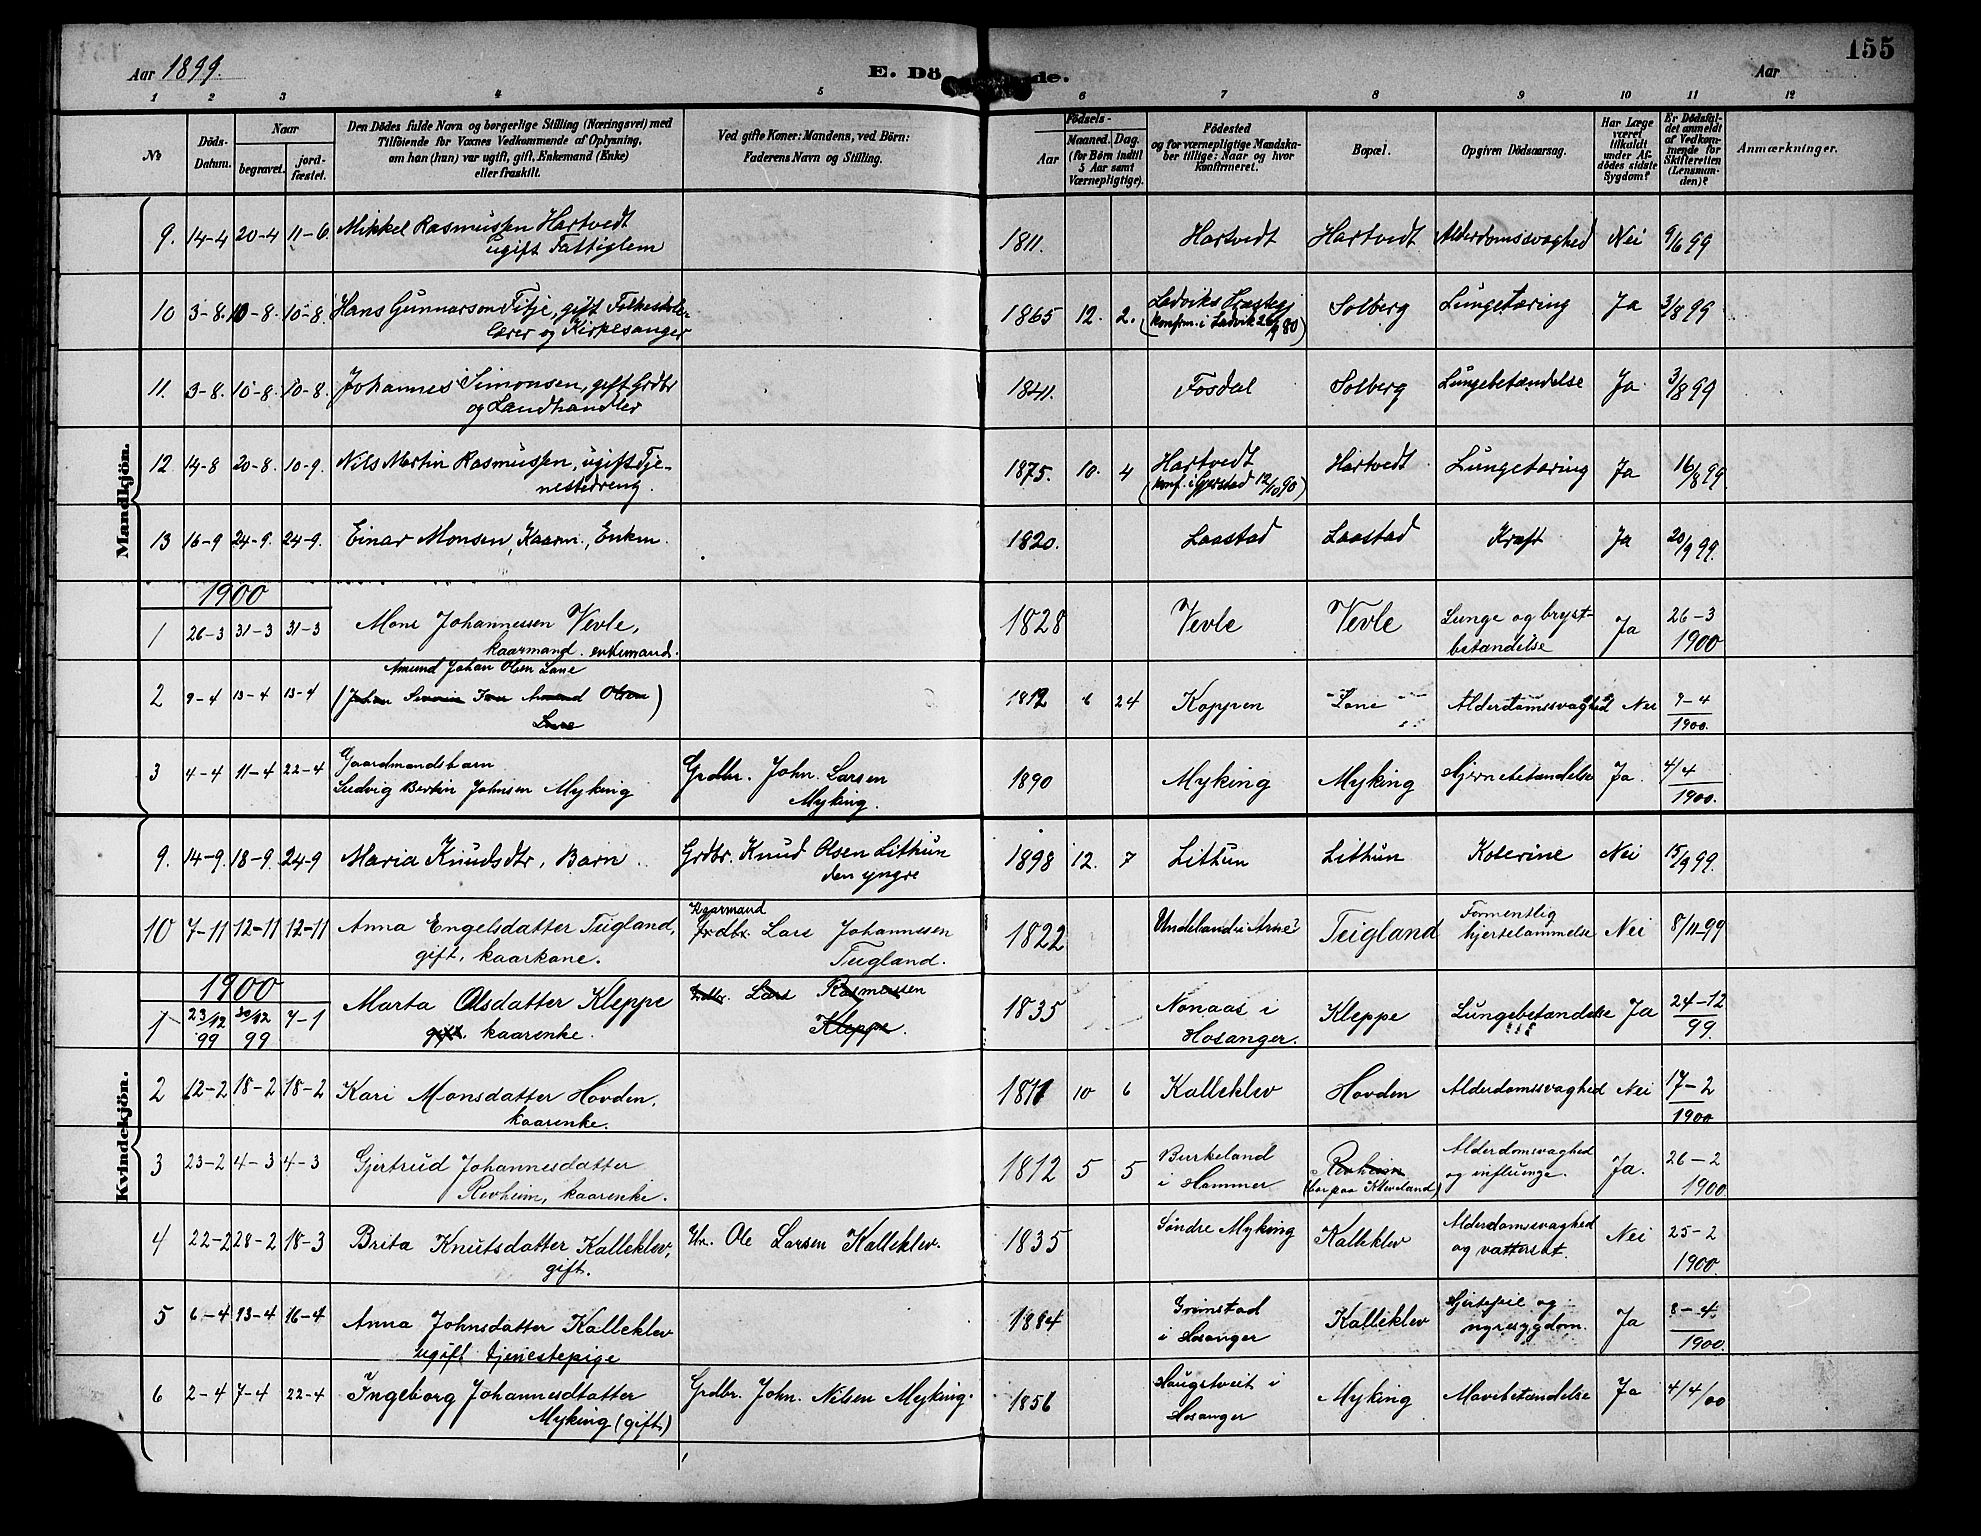 Aar 1899.
E. Dö de.
Aar
155
1 2 3 4 5 6 7 8 9 10 11 12
№
Döds-Datum.
Naar
begravet.
jord-fæstet.
Den Dödes fulde Navn og borgerlige Stilling (Næringsvei) med
Tilföiende for Voxnes Vedkommende af Oplysning,
om han (hun) var ugift, gift, Enkemand (Enke)
eller fraskilt.
Ved gifte Koner: Mandens, ved Börn:
Faderens Navn og Stilling.
Födsels-
Aar
Maaned. Dag.
(for Börn indtil
5 Aar samt
Værnepligtige).
Födested
og for værnepligtige Mandska-
ber tillige: Naar og hvor
konfirmeret.
Bopæl.
Opgiven Dödsaarsag.
Har Læge
været
tilkaldt
under Af-
dödes sidste
Sygdom?
Er Dödsfal-
det anmeldt
af Vedkom-
mende for
Skifteretten
(Lensman-
den)?
Anmærkninger.
Mandkjön.
9. 14-4 20-4 11-6 Mikkel Rasmussen Hartvedt
ugift Fattiglem
1811. Hartvedt Hartvedt Alderdomssvaghed Nei 9/6 99
10 3-8. 10-8. 10-8. Hans Gunnarson Titje, gift Folkeskole-
lærer og Kirkesanger
1865 12. 2. Ladviks Præstegj
(konfirm. i Ladvik 26/9 80) Solberg Lungetæring Ja 3/8 99
11. 3-8. 10-8. 10-8. Johannes Simonsen, gift Grdbr
og Landhandler
1841. Fosdal Solberg Lungebetændelse Ja. 3/8 99
12. 14-8 20-8. 10-9. Nils Martin Rasmussen, ugift Tje-
nestedreng.
1875. 10. 4 Hartvedt
(konf. i Gjerstad 12/10 90) Hartvedt Lungetæring Ja 16/8 99
13 16-9 24-9. 24-9. Einar Monsen, Kaarm., Enkem.
1820. Laastad Laastad Kræft Ja 20/9 99.
1900
1 26-3 31-3 31-3 Mons Johannessen Vevle,
kaarmand. enkemand.
1828 Vevle Vevle Lunge og bryst-
betændelse Ja 26-3
1900
2 9-4 13-4 13-4 Amund Johan Olsen Lone
(Johan Amund Olsen)
Lone
1812 6 24 Koppen Lone Alderdomssvaghed Nei 9-4
1900.
3 4-4 11-4 22-4 Gaardmandsbarn
Ludvig Bertin Johnsen Myking
Grdbr. John. Larsen
Myking.
1890 Myking Myking Hjernebetændelse Ja. 4/4
1900.
Kvindekjön.
9. 14-9. 18-9. 24-9 Maria Knudsdtr, Barn. Grdbr. Knud Olsen Lithun
den yngre
1898 12. 7 Lithun Lithun Kolerine Nei 15/9 99.
10 7-11 12-11 12-11 Anna Engelsdatter Teigland,
gift, kaarkone.
Kaarmand
Grdbr. Lars Johannessen
Teigland.
1822 Undeland i Arne? Teigland Formentlig
hjertelammelse Nei 8/11-99
1900
1 23/12 99 30/12 99 7-1 Marta Olsdatter Kleppe
gift. kaarenke.
Grdbr. Lars Rasmussen
Kleppe.
1835 Nonaas i
Hosanger. Kleppe Lungebetændelse Ja 24-12
99.
2 12-2 18-2 18-2 Kari Monsdatter Hovden,
kaarenke.
1811 10 6 Kalleklev Hovden Alderdomssvaghed Nei 17-2
1900
3 23-2 4-3 4-3 Gjertrud Johannesdatter
Revheim, kaarenke.
1812 5 5 Birkeland
i Hammer Revheim
(bor paa Kleveland) Alderdomsvaghed
og influenze. Ja. 26-2
1900
4 22-2 28-2 18-3 Brita Knutsdatter Kalleklev,
gift.
Ole Larsen Kalleklev.
1835 Søndre Myking Kalleklev Alderdomsvaghed
og vattersot. Nei 25-2
1900.
5 6-4 13-4 16-4 Anna Johnsdatter Kalleklev
ugift tjenestepige
1884 Grimstad
i Hosanger Kalleklev Hjertefeil og
nyresygdom. Ja 8-4
1900.
6 2-4 7-4 22-4 Ingeborg Johannesdtatter
Myking (gift)
Grdbr. John. Nilsen Myking.
1856 Haugstveit i
Hosanger Myking Mavebetændelse Ja 4/4/00